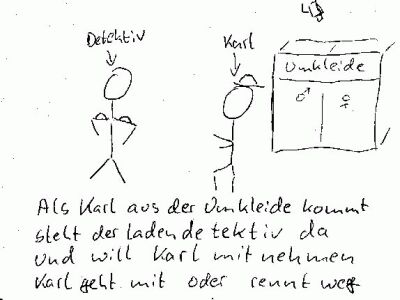 Detektiv
Karl
Umkleide
♂ ♀
Als Karl aus der Umkleide kommt
steht der Ladendetektiv da
und will Karl mitnehmen
Karl geht mit oder rennt weg